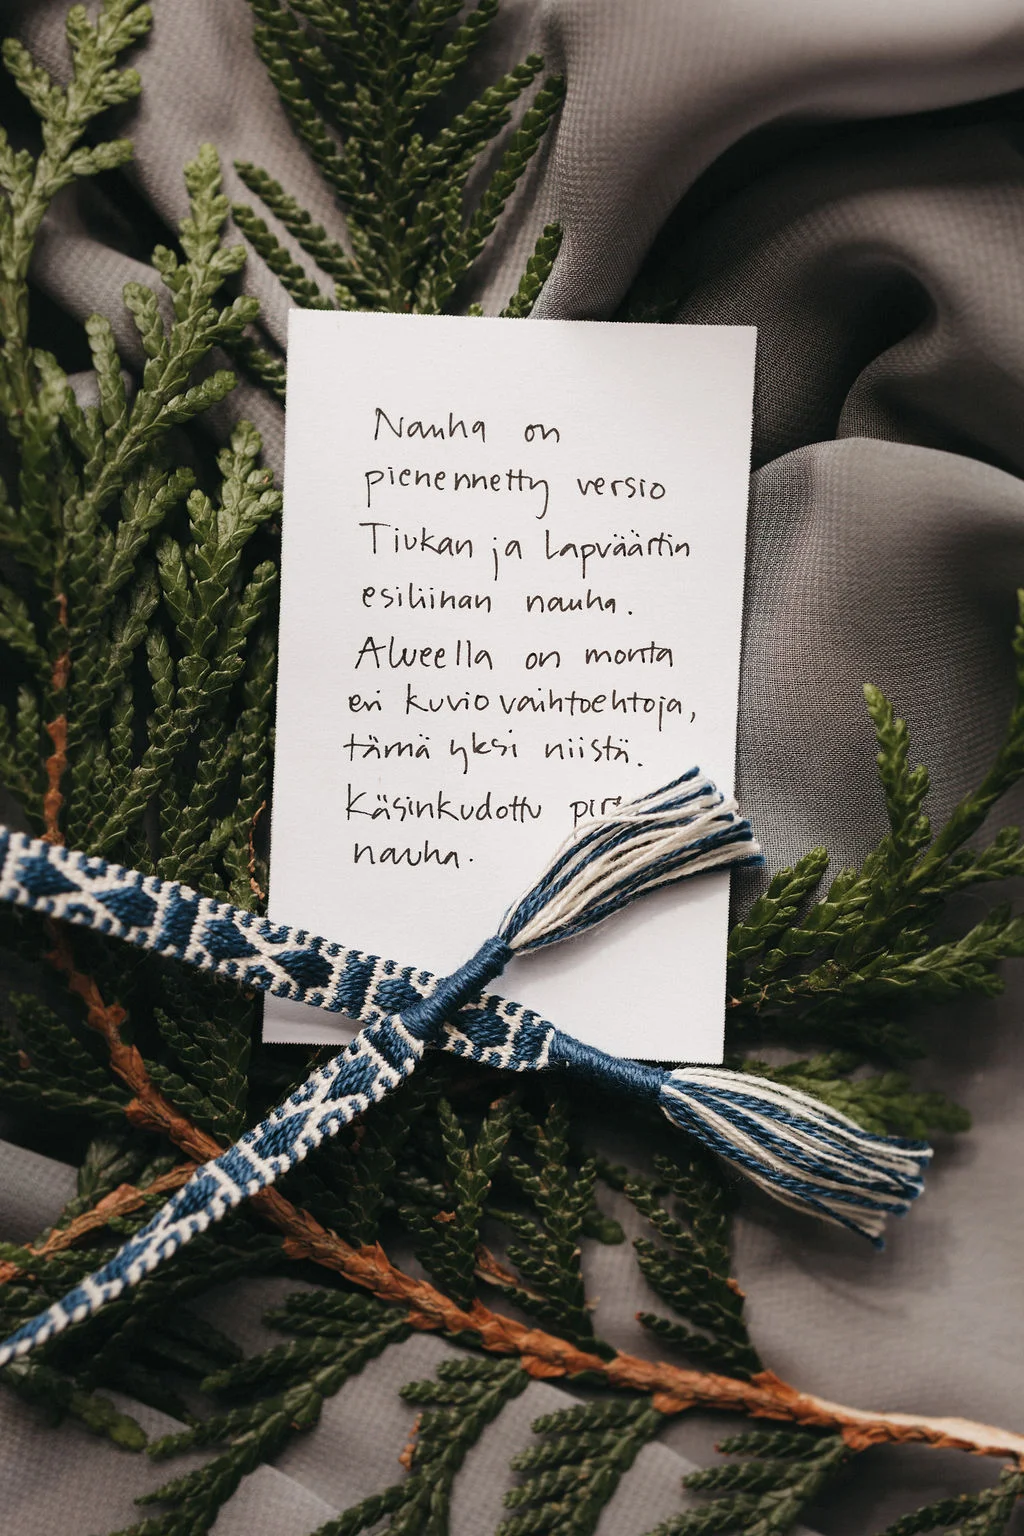 Nauha on
pienennetty versio
Tiukan ja Lapväärtin
esiliinan nauha.
Alueella on monta
eri kuvio vaihtoehtoja,
tämä yksi niistä.
Käsinkudottu
nauha.